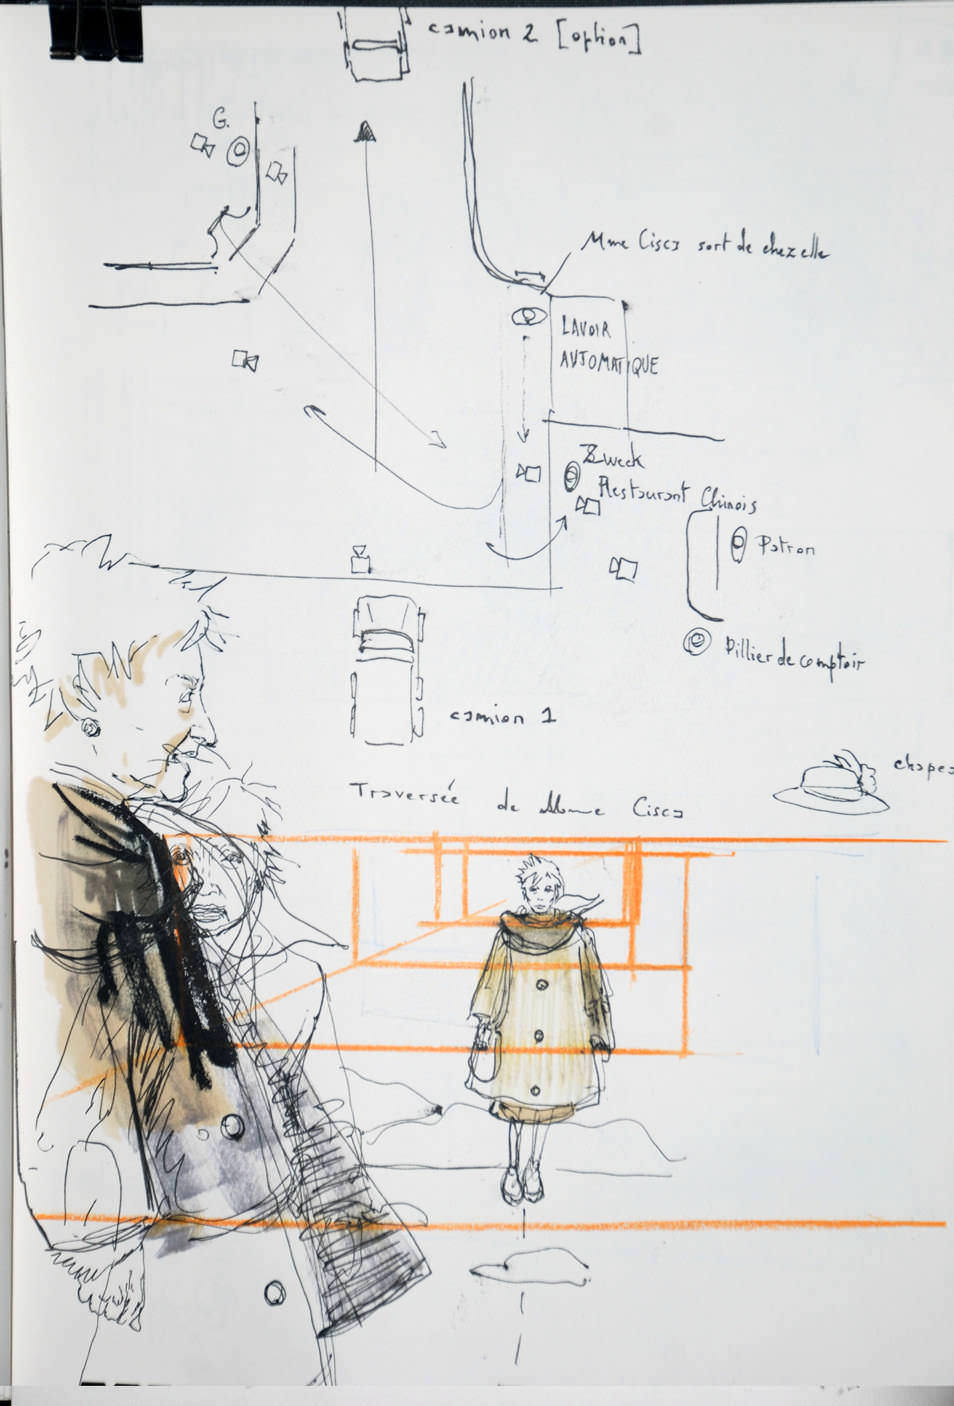 camion 2 [option]
G.
Mme Cisca sort de chez elle
LAVOIR
AUTOMATIQUE
Zweck
Restaurant Chinois
Patron
Pillier de comptoir
camion 1
Traversée de Mme Cisca
chapea